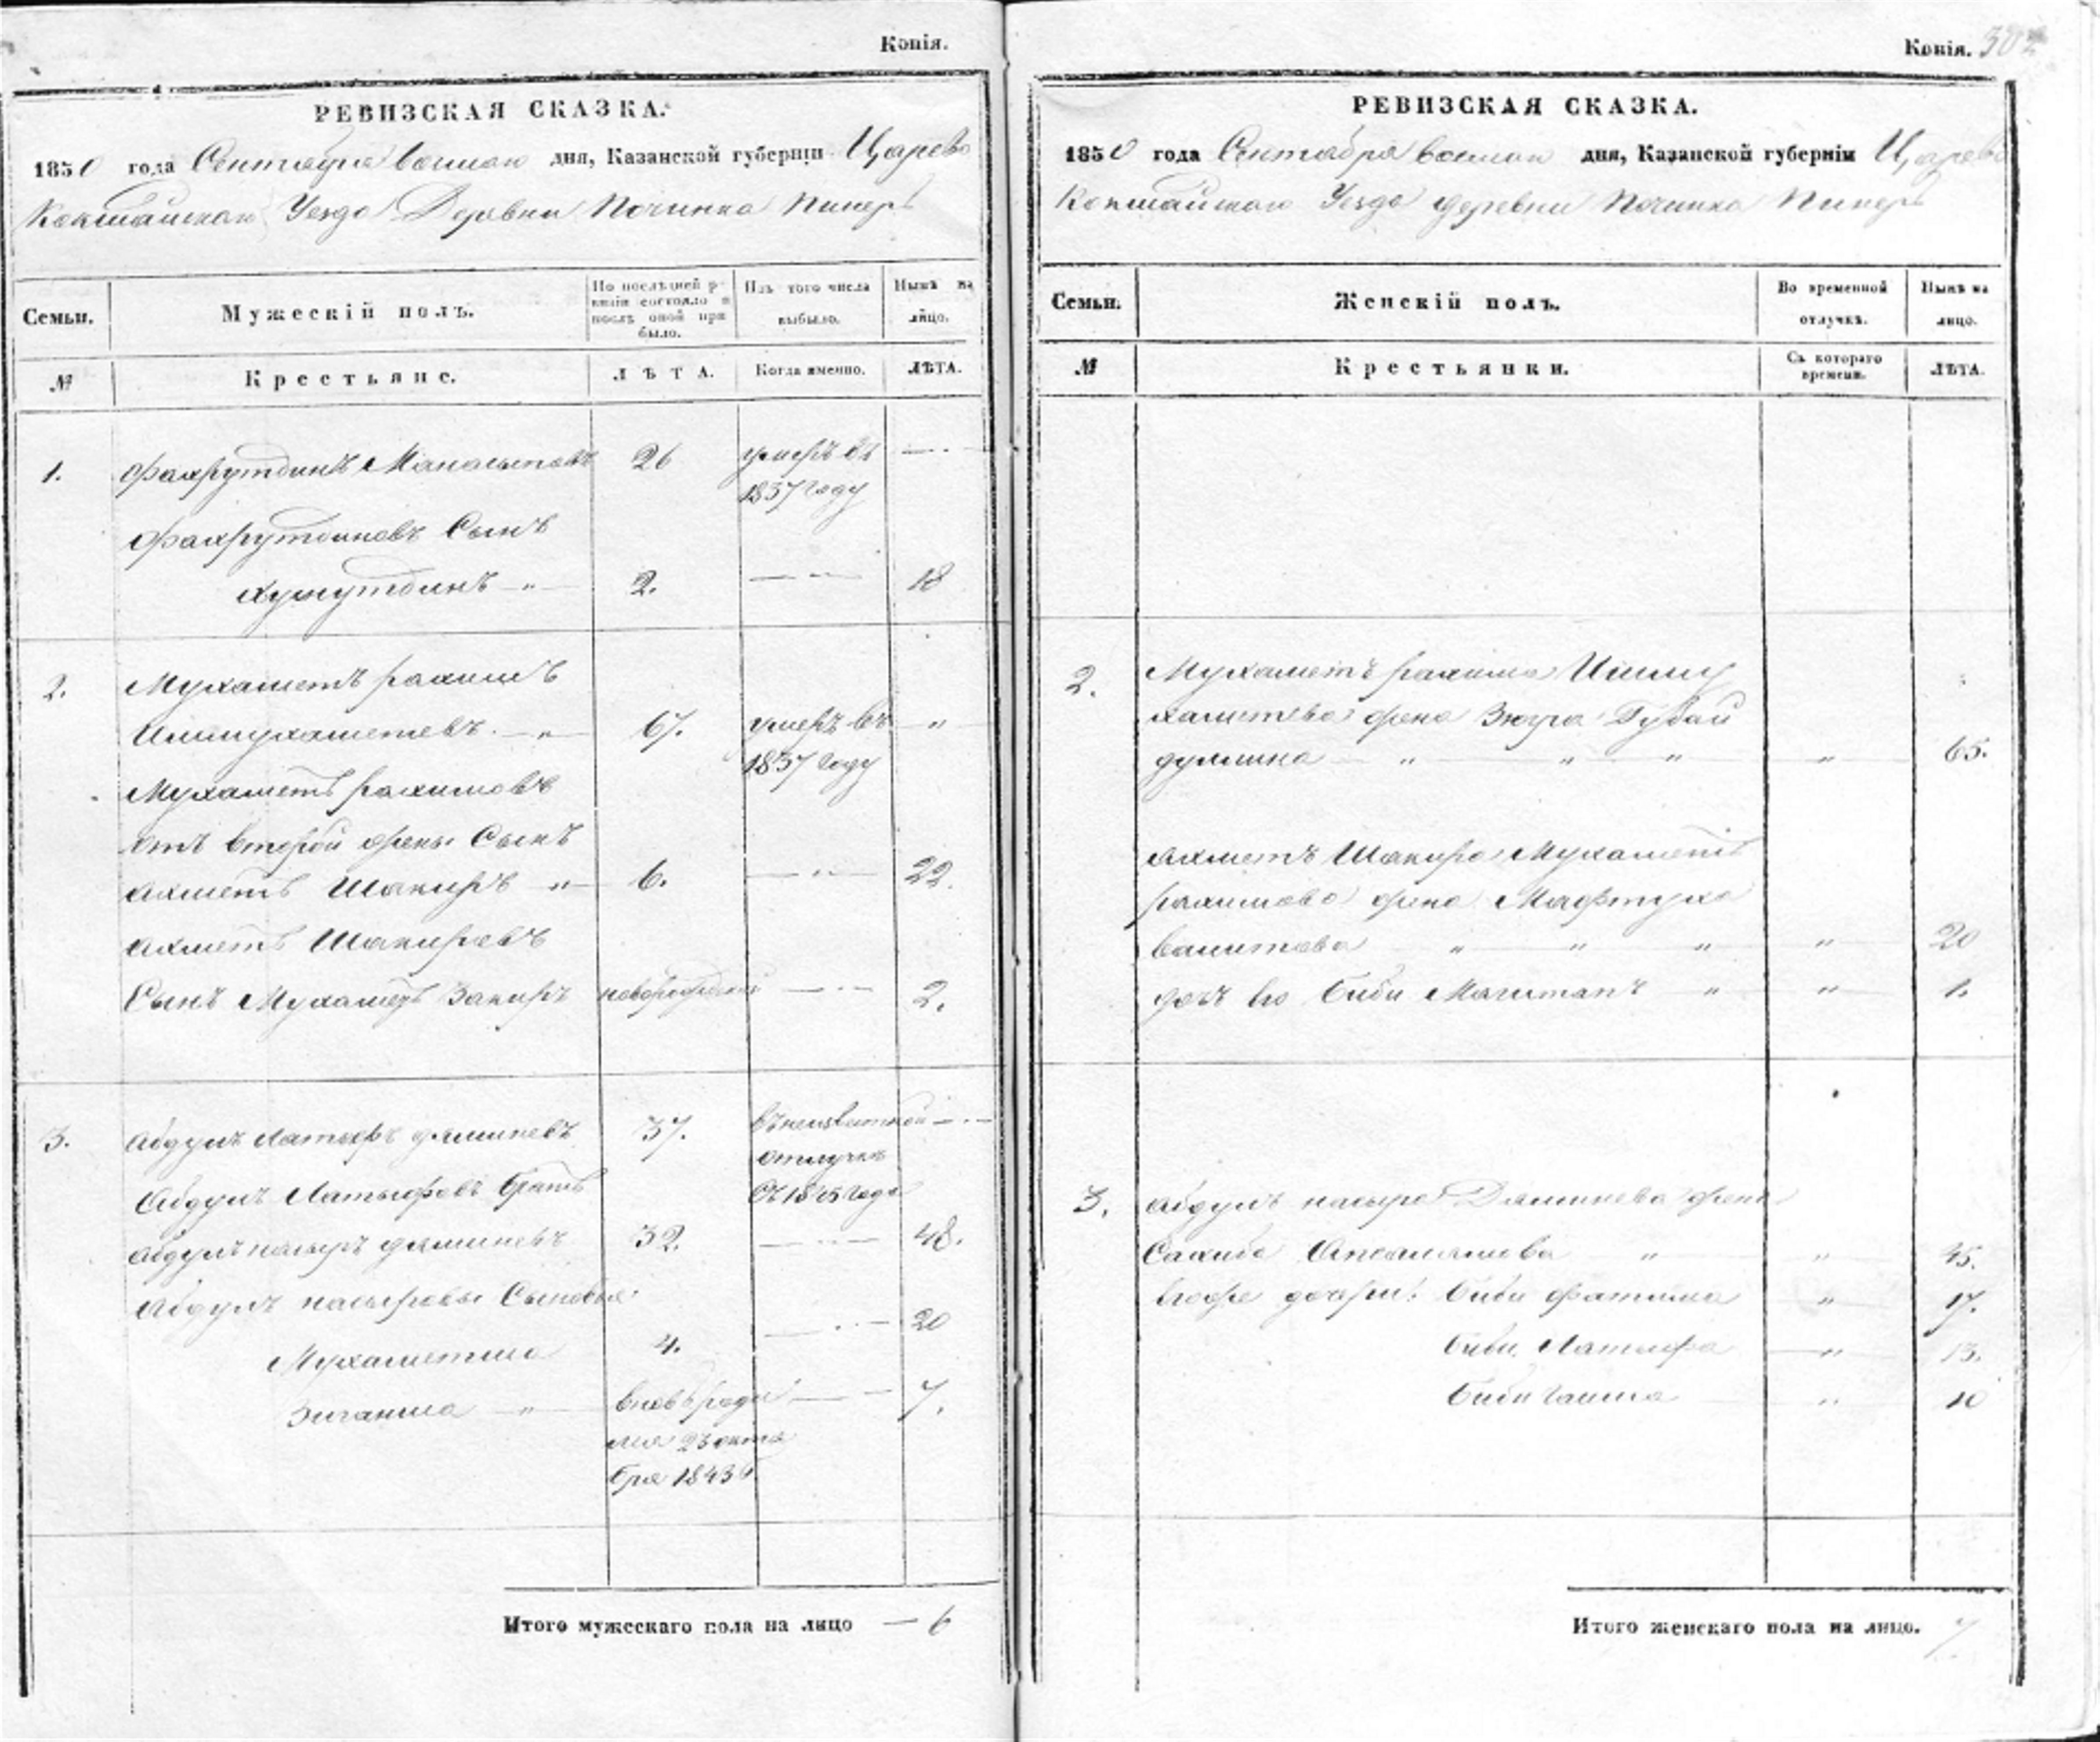 Копія.
РЕВИЗСКАЯ СКАЗКА.
1850 года Сентября восмаго дня, Казанской губерніи Царево
Кокшайскаго Уезда Деревни Починка Пинеръ
Семьи.
Мужескій полъ.
По послѣдней ревизіи состояло и послѣ оной прибыло.
Изъ того числа выбыло.
Нынѣ на лицо.
№
Крестьяне.
ЛѢТА.
Когда именно.
ЛѢТА.
1. Фахрутдинъ Манасыповъ 26 умеръ въ
1837 году
Фахрутдиновъ Сынъ
Хузутдинъ 2. 18
2. Мухаметъ рахимъ
Ишмухаметевъ. 67. умеръ въ
1837 году
Мухаметъ рахимовъ
отъ второй жены Сынъ
Ахметъ Шакиръ 6. 22.
Ахметъ Шакировъ
Сынъ Мухаметъ Закиръ 2.
3. Абдулъ Латыфъ дяминевъ 37. въ неизвестной
отлучке
Абдулъ Латыфовъ братъ
Абдулъ насыръ дяминевъ 32. 48.
Абдулъ насыровы Сыновья
Мухаметша 4. 20
Зиганша вновь роди 7.
лся 23 октя
бря 1843
Итого мужескаго пола на лицо — 6
Копія. 302
РЕВИЗСКАЯ СКАЗКА.
1850 года Сентября восмаго дня, Казанской губерніи Царево
Кокшайскаго Уезда деревни Починка Пинеръ
Семьи.
Женскій полъ.
Во временной отлучкѣ.
Нынѣ на лицо.
№
Крестьянки.
Съ котораго времени.
ЛѢТА.
2. Мухаметъ рахима Ишму
хаметева жена Зюгра Губай
дуллина 65.
Ахметъ Шакира Мухаметъ
рахимова жена Мафтуха
Валитова 20
дочь его Биби Магитапъ 1.
3. Абдулъ насыра Дяминева жена
Сахиба 45.
егоже дочери: Биби Фатима 17.
Биби Латыфа 13.
Биби Гаиша 10
Итого женскаго пола на лицо. 7